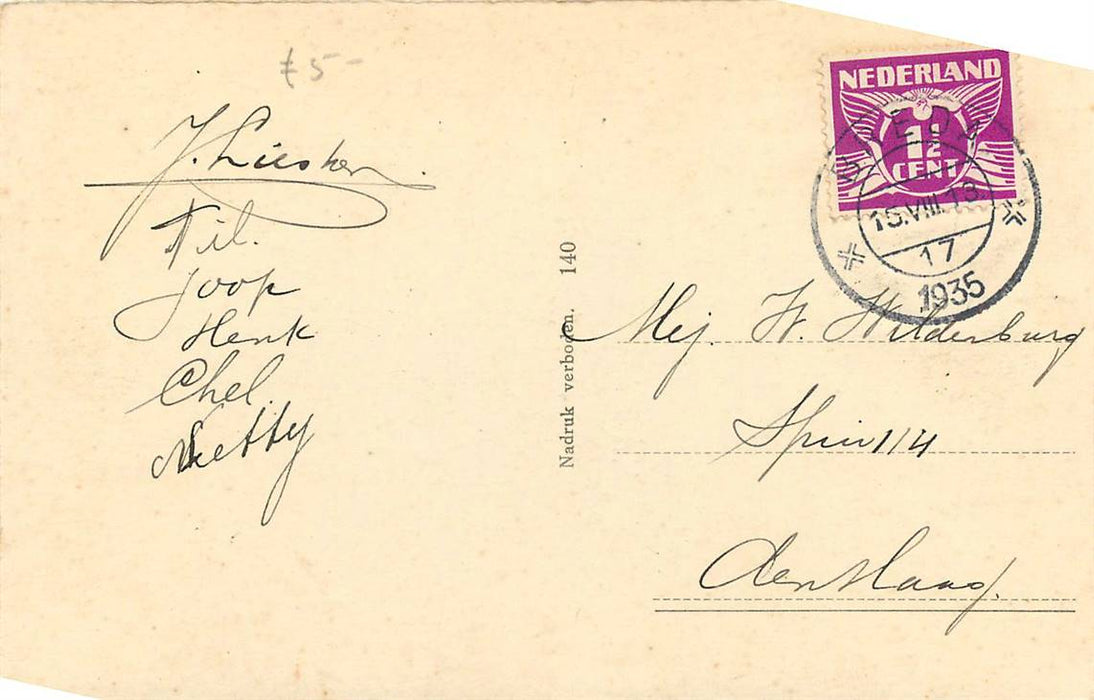 £ 5-
J. Liesker.
Til.
Joop
Henk
Chel.
Netty
Nadruk verboden. 140
NEDERLAND
1½
CENT
BREDA
15.VIII.13
17
1935
Mej. W. Wildenburg
114
den Haag.